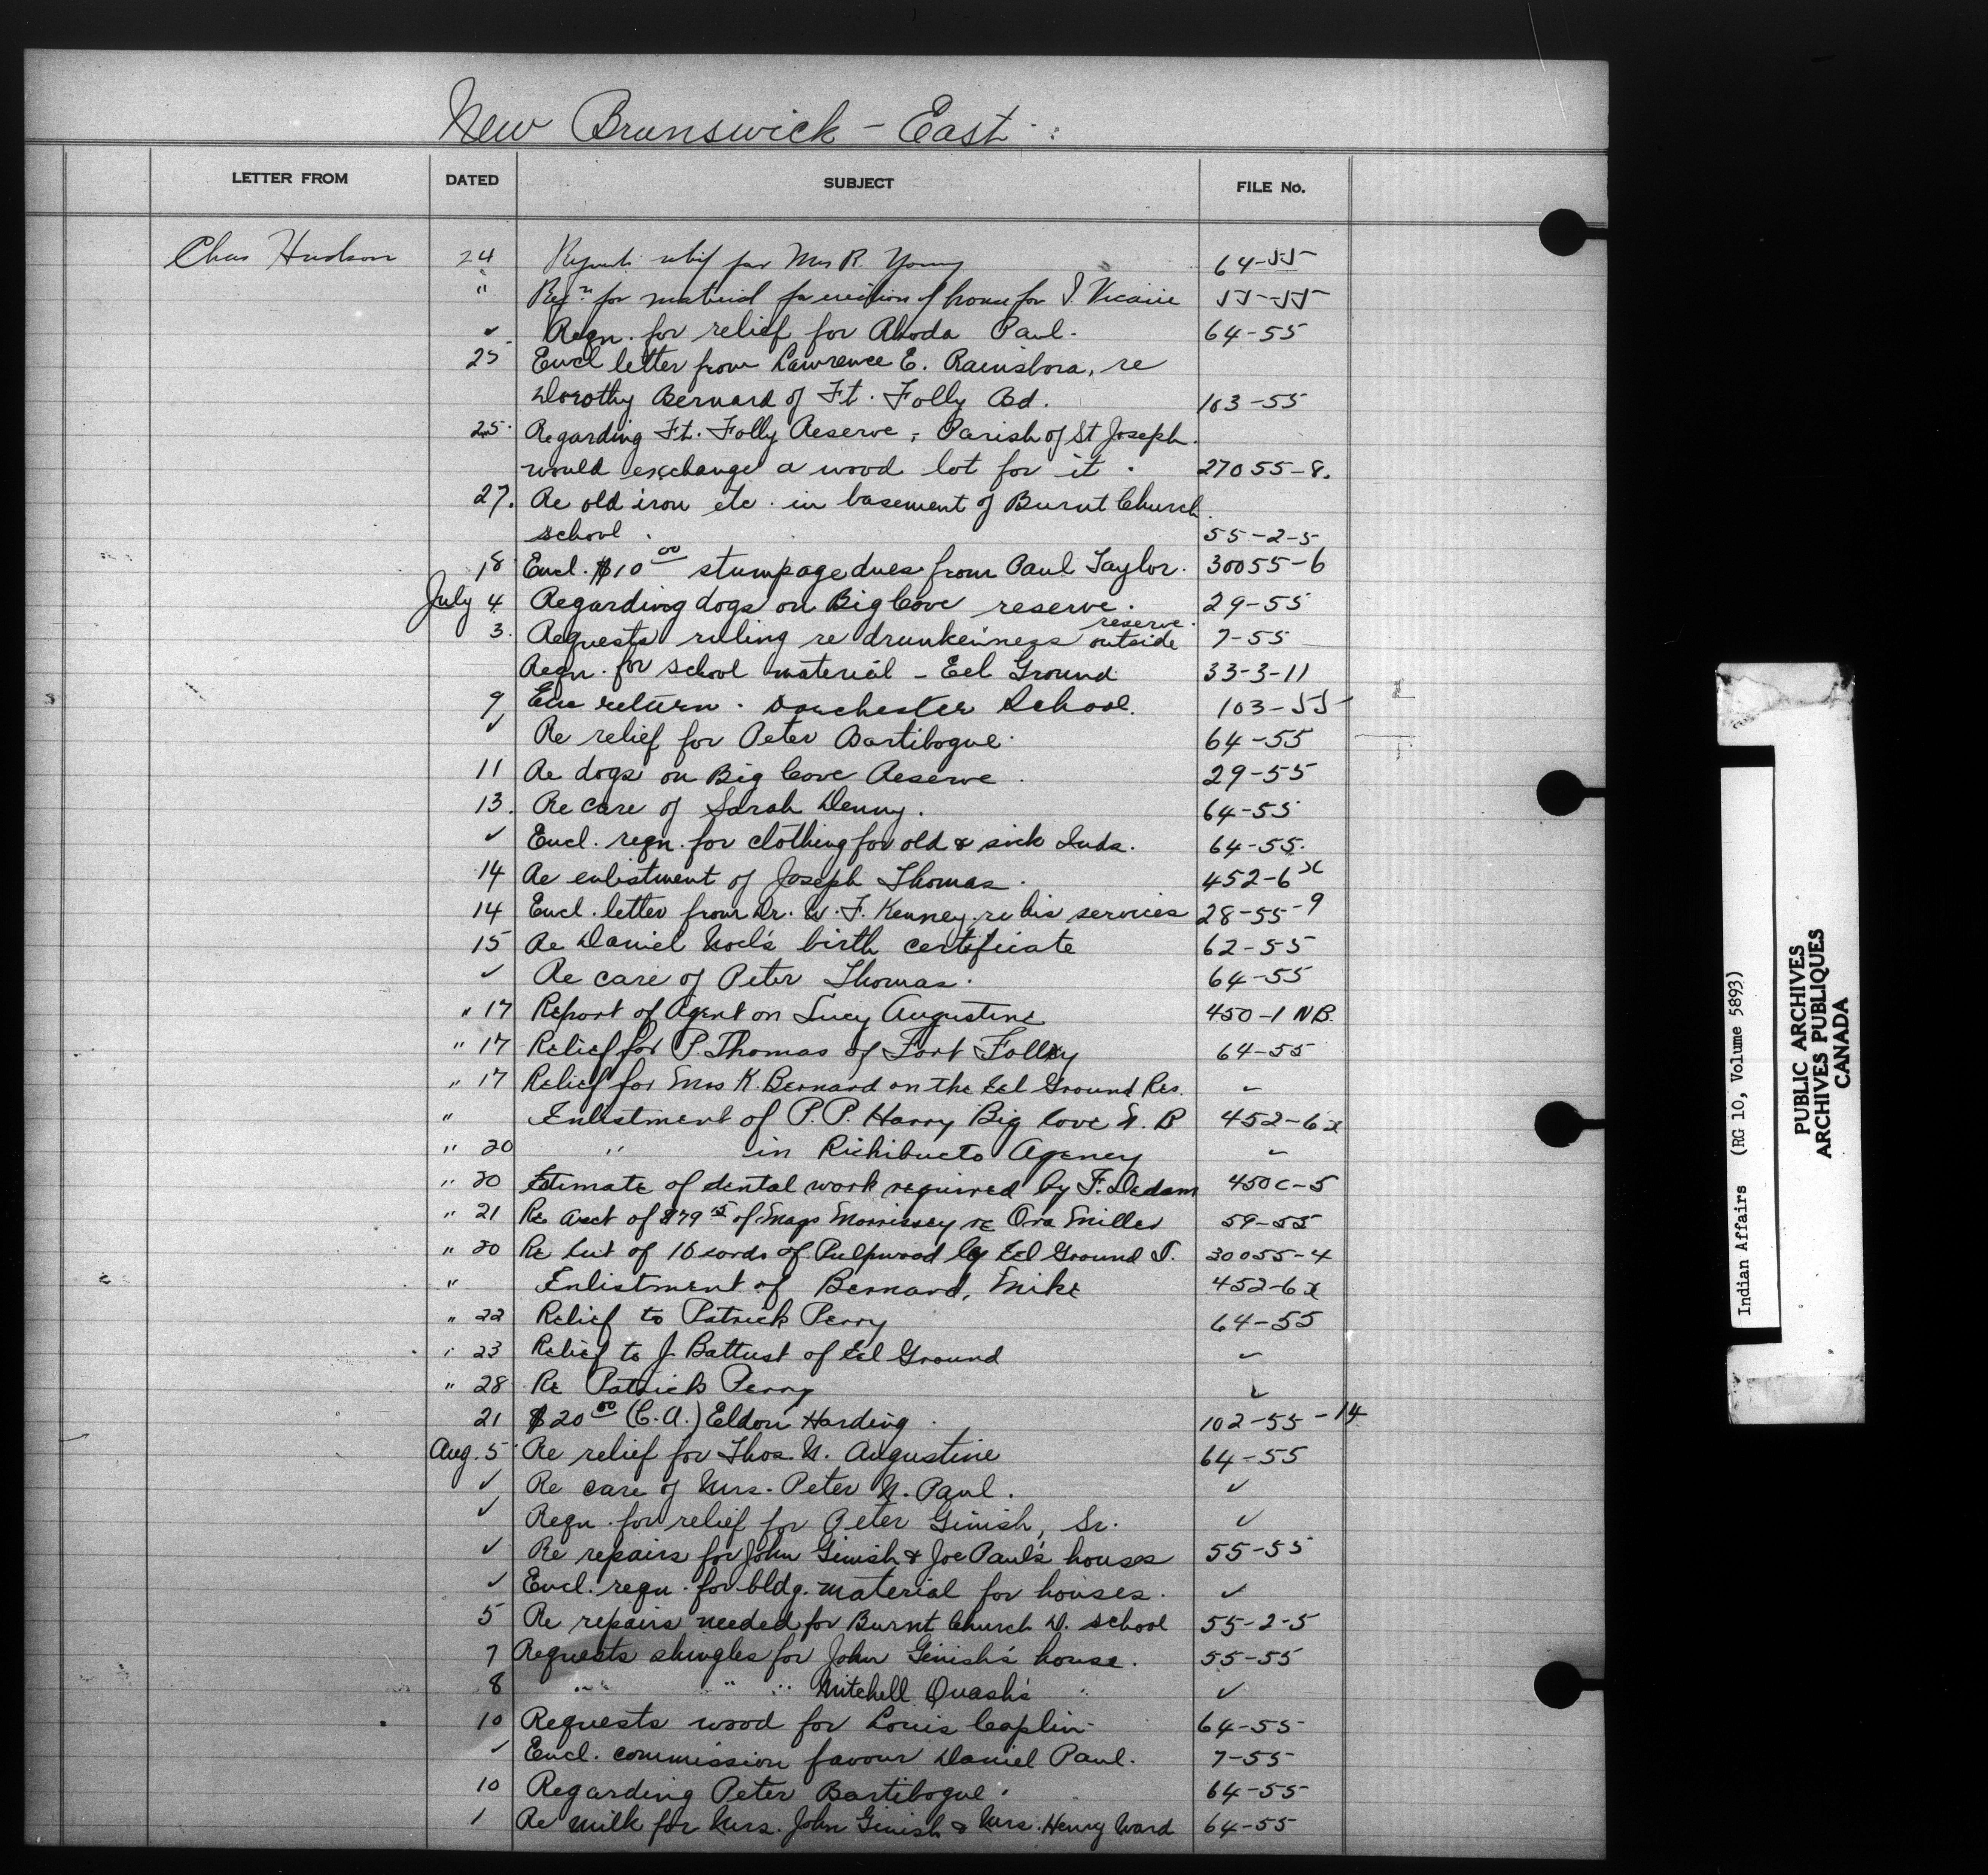 New Brunswick - East
LETTER FROM DATED SUBJECT FILE No.
Chas Hudson 24 Requests relief for Mrs R. Young 64-55
" Reqn. for material for erection of house for J. Vicaire 55-55
✓ Reqn. for relief for Rhoda Paul. 64-55
25 Encl letter from Lawrence E. re
Dorothy Bernard of Ft. Folly Bd. 103-55
25. Regarding Ft. Folly Reserve, Parish of St Joseph.
would exchange a wood lot for it. 27055-8.
27. Re old iron etc. in basement of Burnt Church
school. 55-2-5
18 Encl. $10 00 stumpage dues from Paul Taylor. 30055-6
July 4 Regarding dogs on Big Cove reserve. 29-55
reserve.
3. Requests ruling re drunkeiness outside 7-55
Reqn. for school material - Eel Ground. 33-3-11
9 Enc return. Dorchester School. 103-55
✓ Re relief for Peter Bartibogue. 64-55
11 Re dogs on Big Cove Reserve. 29-55
13. Re care of Sarah Denny. 64-55
✓ Encl. reqn. for clothing for old & sick Inds. 64-55.
14 Re enlistment of Joseph Thomas. 452-6x
14 Encl. letter from Dr. W. F. Kenney re his services 28-55-9
15 Re Daniel Noel's birth certificate 62-55
✓ Re care of Peter Thomas. 64-55
" 17 Report of Agent on Lucy Augustine 450-1 NB.
" 17 Relief for P. Thomas of Fort Folly 64-55
" 17 Relief for Mrs K. Bernard on the Eel Ground Res. ✓
" Enlistment of P. P. Harry Big Cove N. B 452-6x
" 20 " in Richibucto Agency ✓
" 20 Estimate of dental work required by F. Dedam 450c-5
" 21 Re acct of $79 15 of Mags Morrissey re Ora Miller 59-55
" 20 Re Cut of 16 cords of Pulpwood by Eel Ground I. 30055-4
" Enlistment of Bernard, Mike 452-6x
" 22 Relief to Patrick Perry 64-55
" 23 Relief to J. Battust of Eel Ground ✓
" 28 Re Patrick Perry ✓
21 $20 00 (C.A.) Eldon Harding. 102-55-14
Aug. 5 Re relief for Thos. N. Augustine 64-55
✓ Re care of Mrs. Peter N. Paul. ✓
✓ Reqn. for relief for Peter Ginish, Sr. ✓
✓ Re repairs for John Ginish & Joe Paul's houses 55-55
✓ Encl. reqn. for bldg. material for houses. ✓
5 Re repairs needed for Burnt Church D. school 55-2-5
7 Requests shingles for John Ginish's house. 55-55
8 " " " Mitchell Quash's " ✓
10 Requests wood for Louis Caplin 64-55
✓ Encl. commission favour Daniel Paul. 7-55
10 Regarding Peter Bartibogue. 64-55
1 Re milk for Mrs. John Ginish & Mrs. Henry Ward 64-55
Indian Affairs (RG 10, Volume 5893)
PUBLIC ARCHIVES
ARCHIVES PUBLIQUES
CANADA